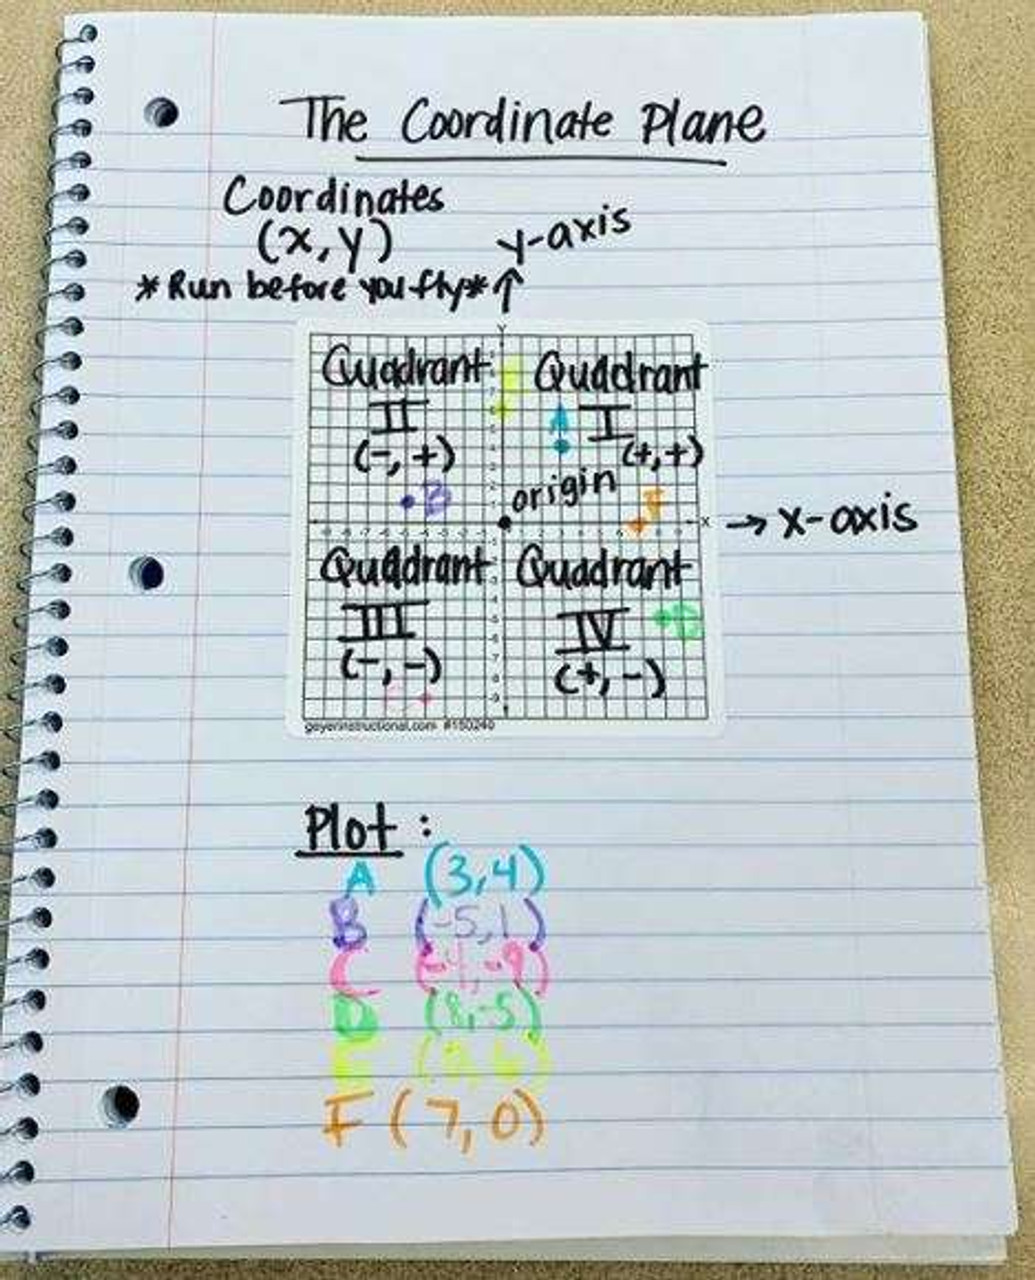 The Coordinate Plane
Coordinates
(x, y)
y-axis
*Run before you fly* ↑
Y
Quadrant
II
(-, +)
Quadrant
I
(+, +)
A
B
origin
F
X
→ x-axis
Quadrant
III
(-, -)
Quadrant
IV
(+, -)
D
geyerinstructional.com #150240
Plot :
A (3,4)
B (-5,1)
C (-4,-9)
D (8,-5)
E (0,6)
F (7,0)